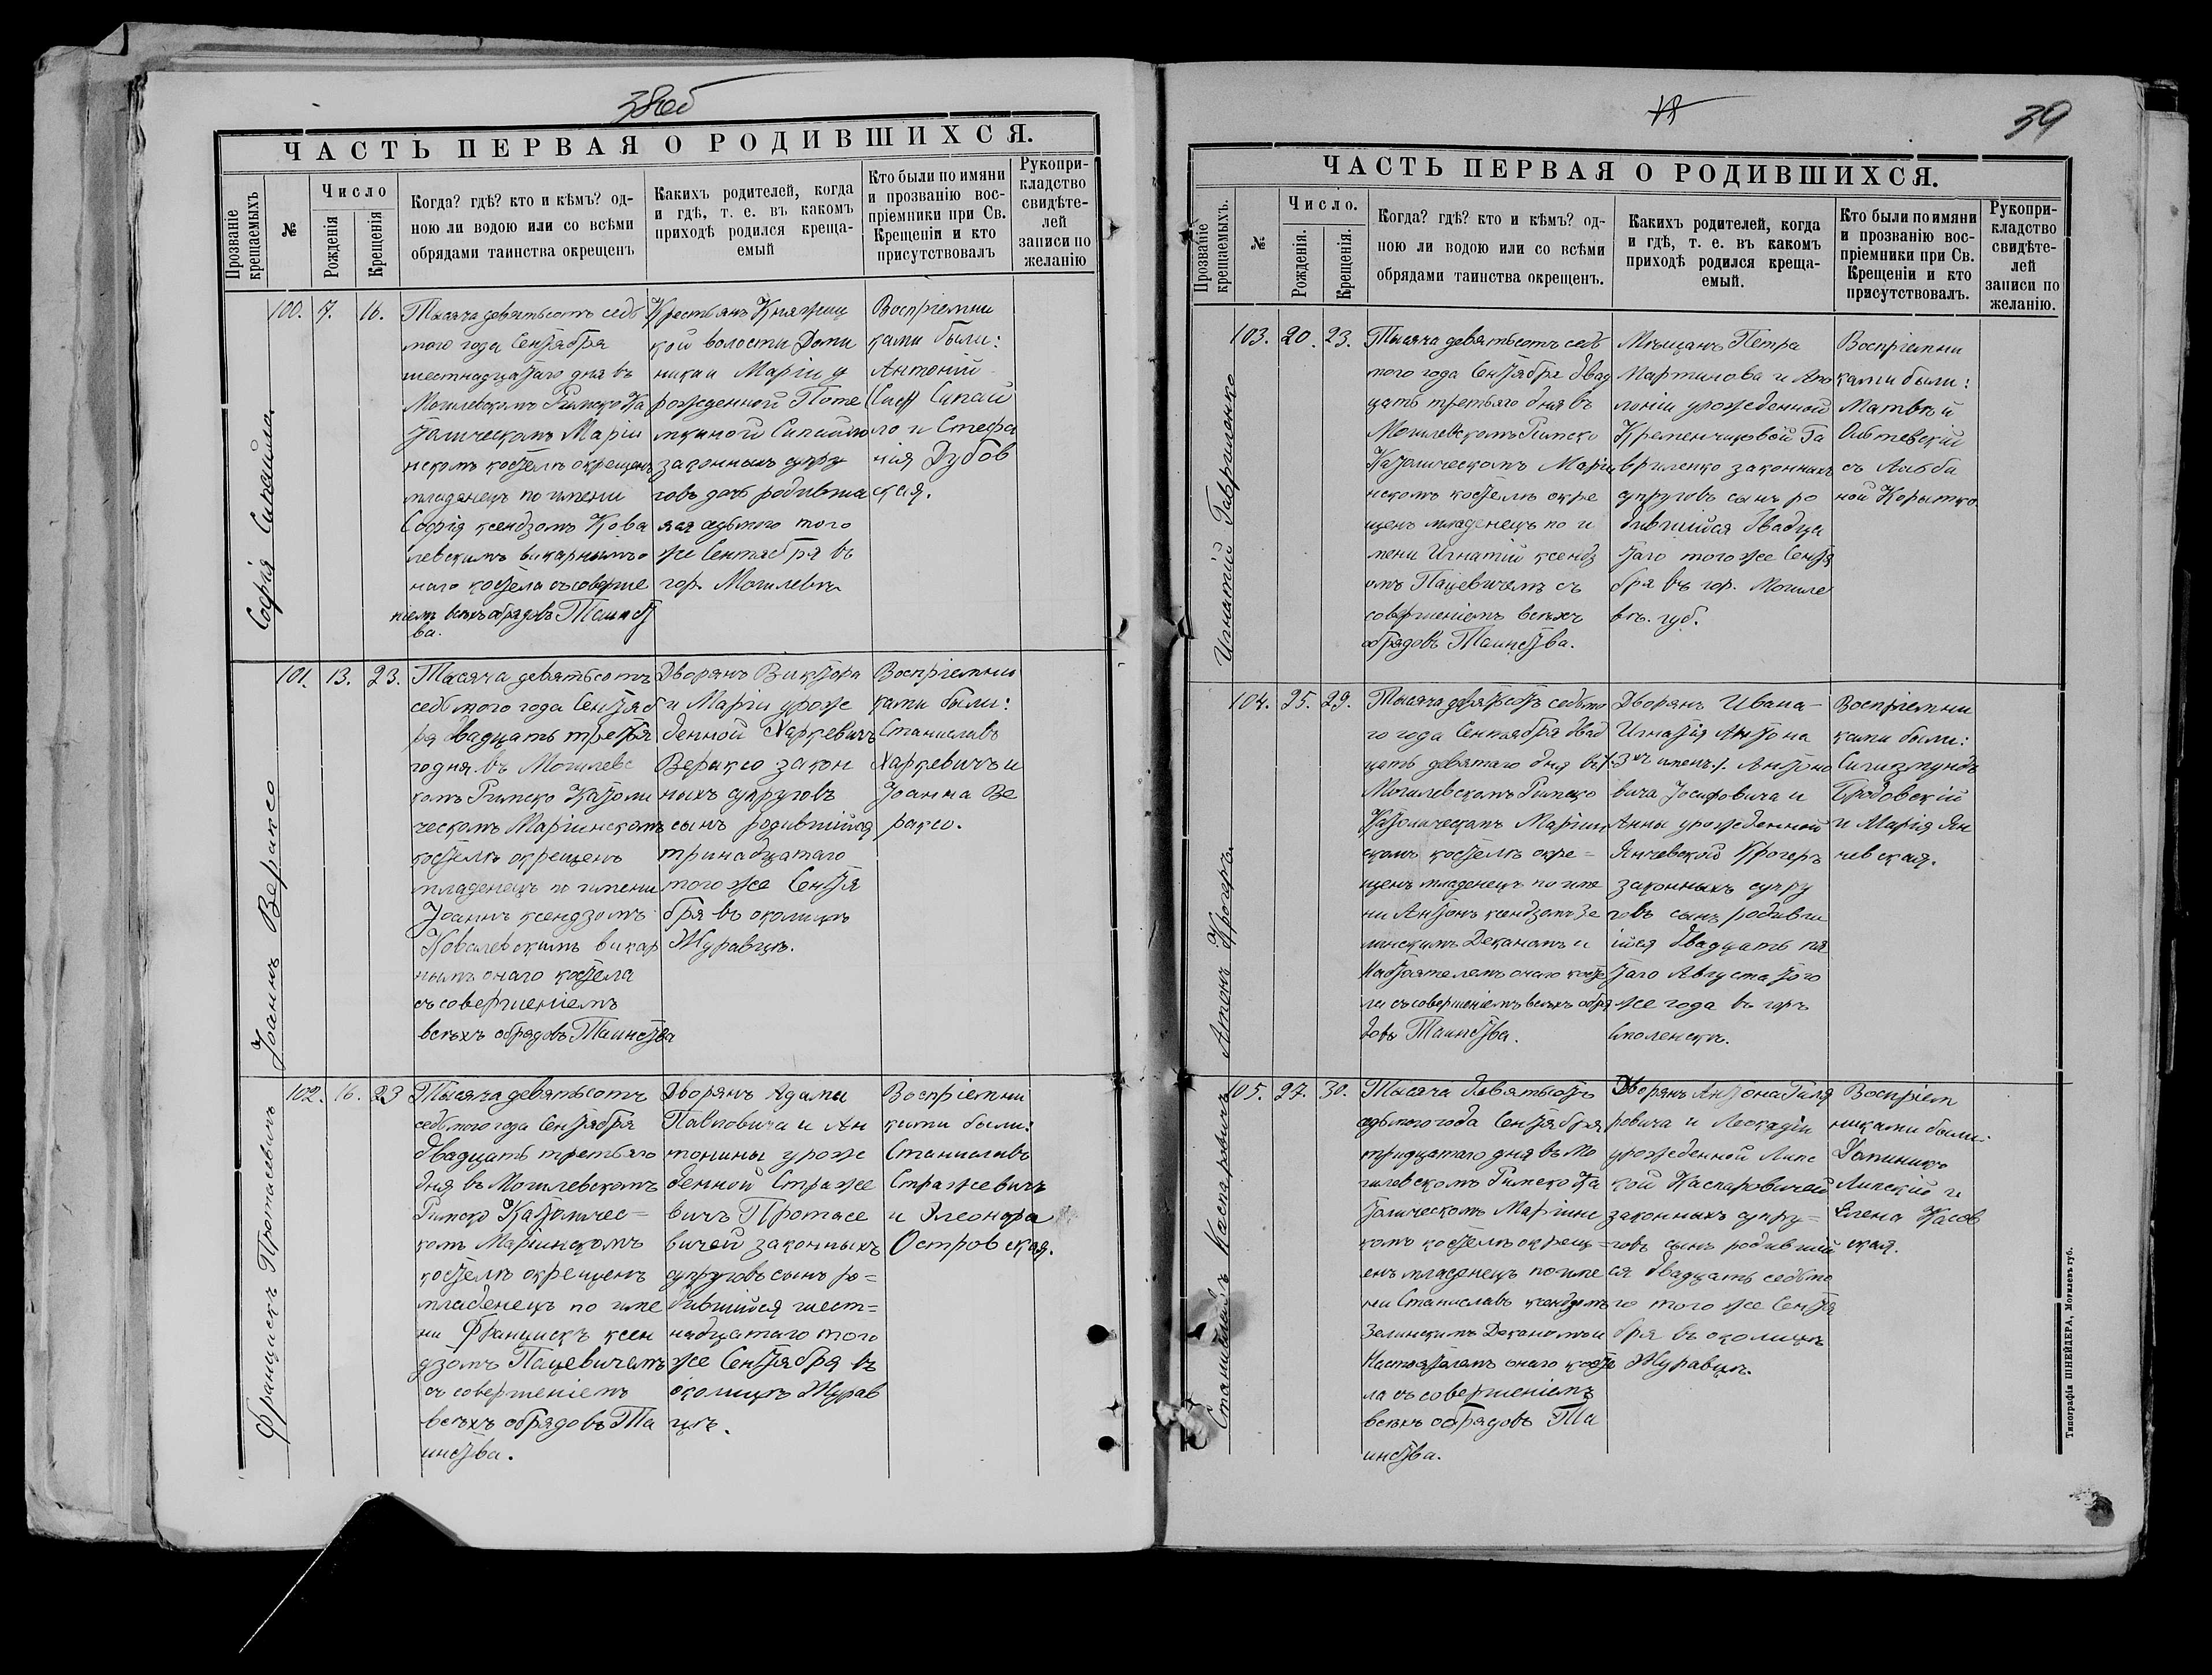 38об
ЧАСТЬ ПЕРВАЯ О РОДИВШИХСЯ.
Прозваніе крещаемыхъ
№
Число
Рожденія
Крещенія
Когда? гдѣ? кто и кѣмъ? од-
ною ли водою или со всѣми
обрядами таинства окрещенъ
Какихъ родителей, когда
и гдѣ, т. е. въ какомъ
приходѣ родился креща-
емый
Кто были по имяни
и прозванію вос-
пріемники при Св.
Крещеніи и кто
присутствовалъ
Рукопри-
кладство
свидѣте-
лей
записи по
желанію
Софія Сипайло
100.
7.
16.
Тысяча девятьсотъ седь
мого года Сентября
шестнадцатаго дня въ
Могилевскомъ Римско Ка
толическомъ Маріи
нскомъ костелѣ окрещенъ
младенецъ по имени
Софія ксендзомъ Кова
левскимъ викарнымъ о
наго костела съ соверше
ніемъ всѣхъ обрядовъ Таинст
ва.
Крестьянъ Княжиц
кой волости Доми
ника и Маріи у
рожденной Поте
мкиной Сипайло
законныхъ супру
говъ дочь родивша
яся седьмого того
же Сентября въ
гор. Могилевѣ
Воспріемни
ками были:
Антоній
Сипай
ло и Стефа
нія Дубов
ская.
Іоаннъ Вераксо
101.
13.
23.
Тысяча девятьсотъ
седьмого года Сентяб
ря двадцать третья
го дня въ Могилевс
комъ Римско Католи
ческомъ Маріинскомъ
костелѣ окрещенъ
младенецъ по имени
Іоаннъ ксендзомъ
Ковалевскимъ викар
нымъ онаго костела
съ совершеніемъ
всѣхъ обрядовъ Таинства
Дворянъ Виктора
и Маріи урож
денной Харкевичъ
Вераксо закон
ныхъ супруговъ
сынъ родившійся
тринадцатаго
того же Сентя
бря въ околицѣ
Журавцѣ.
Воспріемни
ками были:
Станиславъ
Харкевичъ и
Іоанна Ве
раксо.
Францискъ Протасевичъ
102.
16.
23
Тысяча девятьсотъ
седьмого года Сентября
двадцать третьяго
дня въ Могилевскомъ
Римско Католичес=
комъ Маріинскомъ
костелѣ окрещенъ
младенецъ по име
ни Францискъ ксен
дзомъ Пацевичемъ
съ совершеніемъ
всѣхъ обрядовъ Та
инства.
Дворянъ Адама
Павловича и Ан
тонины урож
денной Страже
вичъ Протасе
вичей законныхъ
супруговъ сынъ ро=
дившійся шест=
надцатаго того
же Сентября въ
околицѣ Журав
цѣ.
Воспріемни
ками были:
Станиславъ
Стражевичъ
и Элеонора
Островская.
39
ЧАСТЬ ПЕРВАЯ О РОДИВШИХСЯ.
Прозваніе крещаемыхъ.
№
Число.
Рожденія.
Крещенія.
Когда? гдѣ? кто и кѣмъ? од-
ною ли водою или со всѣми
обрядами таинства окрещенъ.
Какихъ родителей, когда
и гдѣ, т. е. въ какомъ
приходѣ родился креща-
емый.
Кто были по имяни
и прозванію вос-
пріемники при Св.
Крещеніи и кто
присутствовалъ.
Рукопри-
кладство
свидѣте-
лей
записи по
желанію.
Игнатій Гавриленко
103.
20.
23.
Тысяча девятьсотъ седь
мого года Сентября двад
цать третьяго дня въ
Могилевскомъ Римско
Католическомъ Маріи
нскомъ костелѣ окре
щенъ младенецъ по и
мени Игнатій ксендз
омъ Пацевичемъ съ
совершеніемъ всѣхъ
обрядовъ Таинства.
Мѣщанъ Петра
Мартинова и Апо
лоніи урожденной
Кременчуковой Га
вриленко законныхъ
супруговъ сынъ ро
дившійся двадца
таго того же Сентя
бря въ гор. Могиле
вѣ. губ.
Воспріемни
ками были:
Матвѣй
съ Альби
ной Корытко
Антонъ Крогеръ
104.
25.
29.
Тысяча девятьсотъ седьмо
го года Сентября двад
цать девятаго дня въ
Могилевскомъ Римско
Католическомъ Маріин
скомъ костелѣ окре=
щенъ младенецъ по име
ни Антонъ ксендзомъ Зе
линскимъ Деканомъ и
Настоятелемъ онаго косте
ла съ совершеніемъ всѣхъ обря
довъ Таинства.
Дворянъ Ивана-
Игнатія Антона
/3хъ именъ/ Антоно
вича Іосифовича и
Анны урожденной
Янчевской Крогеръ
законныхъ супру
говъ сынъ родивш
ійся двадцать пя
таго Августа того
же года въ горъ
Смоленскѣ.
Воспріемни
ками были:
Сигизмундъ
Бродовскій
и Марія Ян
чевская.
Станиславъ Каспаровичъ
105.
27.
30.
Тысяча девятьсотъ
седьмого года Сентября
тридцатаго дня въ Мо
гилевскомъ Римско Ка
толическомъ Маріинс
комъ костелѣ окрещ=
енъ младенецъ по име
ни Станиславъ ксендзомъ
Зелинскимъ Деканомъ и
Настоятелемъ онаго косте
ла съ совершеніемъ
всѣхъ обрядовъ Та
инства.
Дворянъ Антона Гиля
ровича и Леокадіи
урожденной Липс
кой Каспаровичей
законныхъ супру=
говъ сынъ родивші
ся двадцать седьмо
го того же Сентя
бря въ околицѣ
Журавцѣ.
Воспріем
никами были:
Доминикъ
Липскій и
Елена Касов
ская.
Типографія ШНЕЙДЕРА, Могилевъ губ.